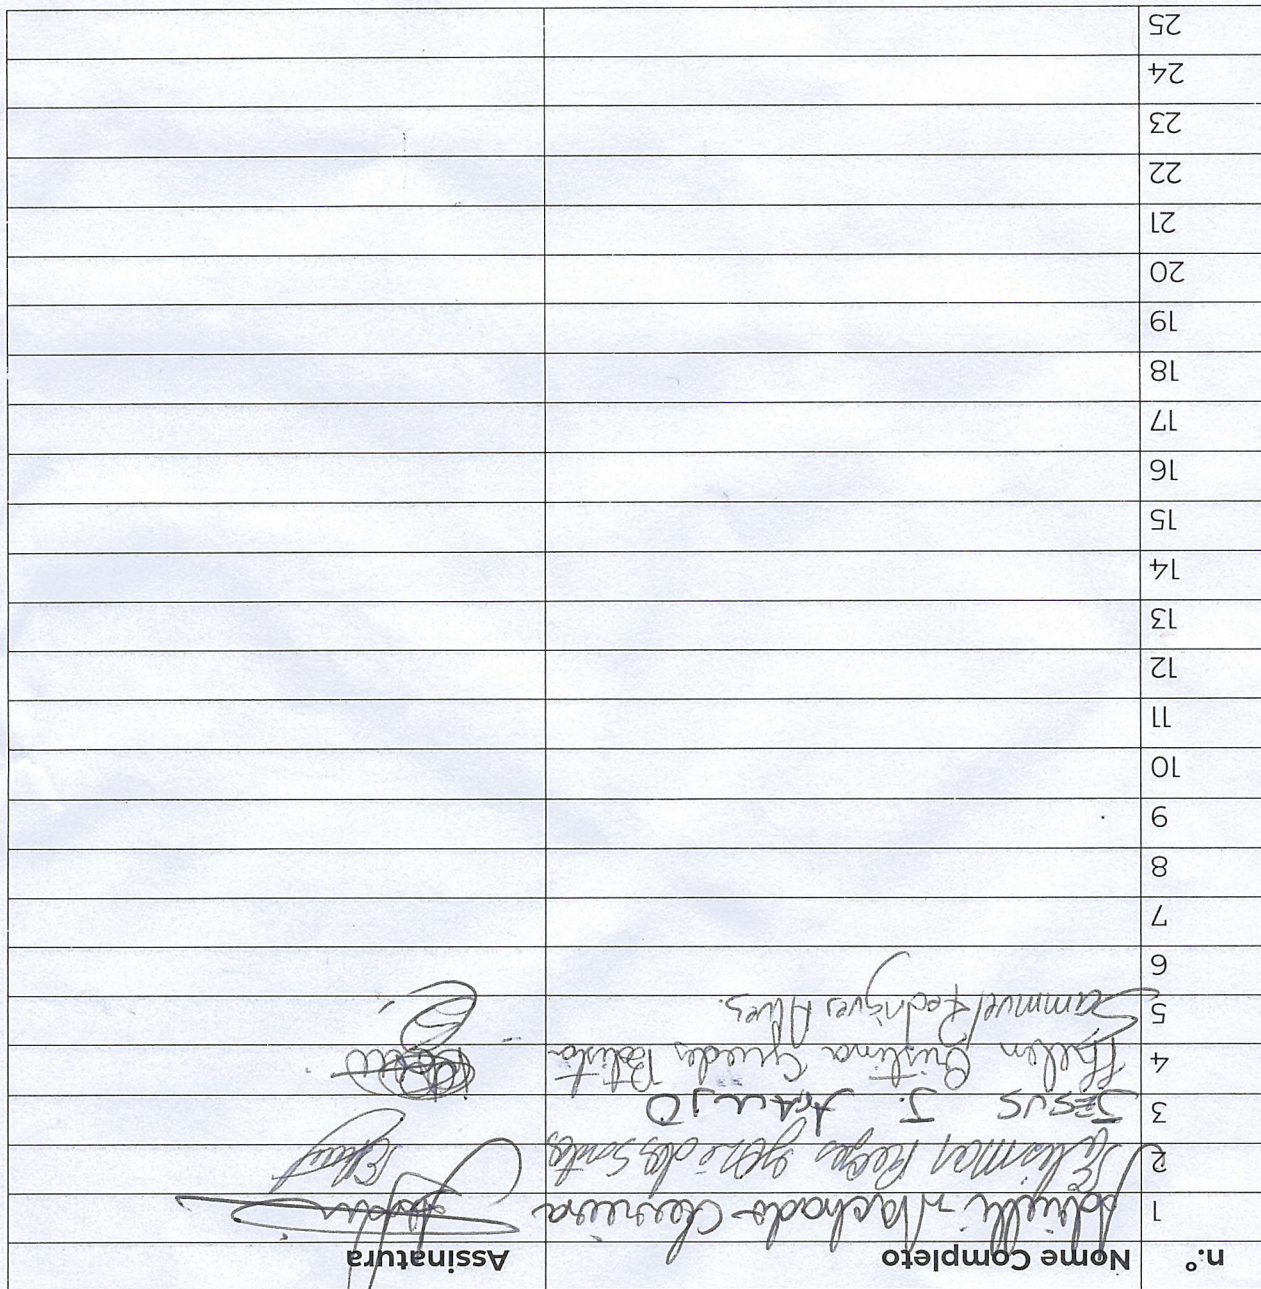 n.º Nome Completo Assinatura
1 Adrielli Machado
2 dos Santos
3 JESUS J. ARAUJO
4 Cristina Guedes Batista
5 Sammuel Rodrigues Alves.
6
7
8
9
10
11
12
13
14
15
16
17
18
19
20
21
22
23
24
25